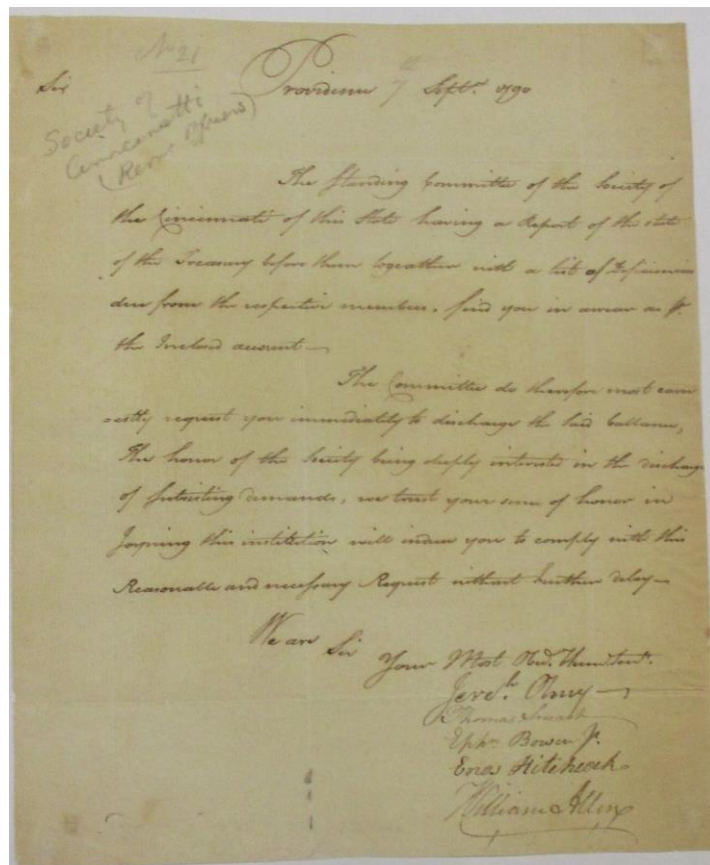 No 21
Sir Providence 7th Septr. 1790
Society of
Cincinnatti
(Revo officers)
The Standing Committee of the Society of
the Cincinnati of this State having a Report of the state
of the Treasury before them togeather with a list of Deficiencies
due from the respective members, find you in arrear as pr.
the Inclosd account—
The Committee do therefore most earn
=estly request you immediately to discharge the said ballance,
The honor of the Society being deeply interested in the discharge
of subsisting demands, we trust your sense of honor in
Joyning this institution will induce you to comply with this
Reasonable and necessary Request without further delay—
We are Sir
Your Most Obd. Hum. Servt.
Jereh. Olney
Thomas
Ephm Bowen Jr.
Enos Hitchcock
William Allen